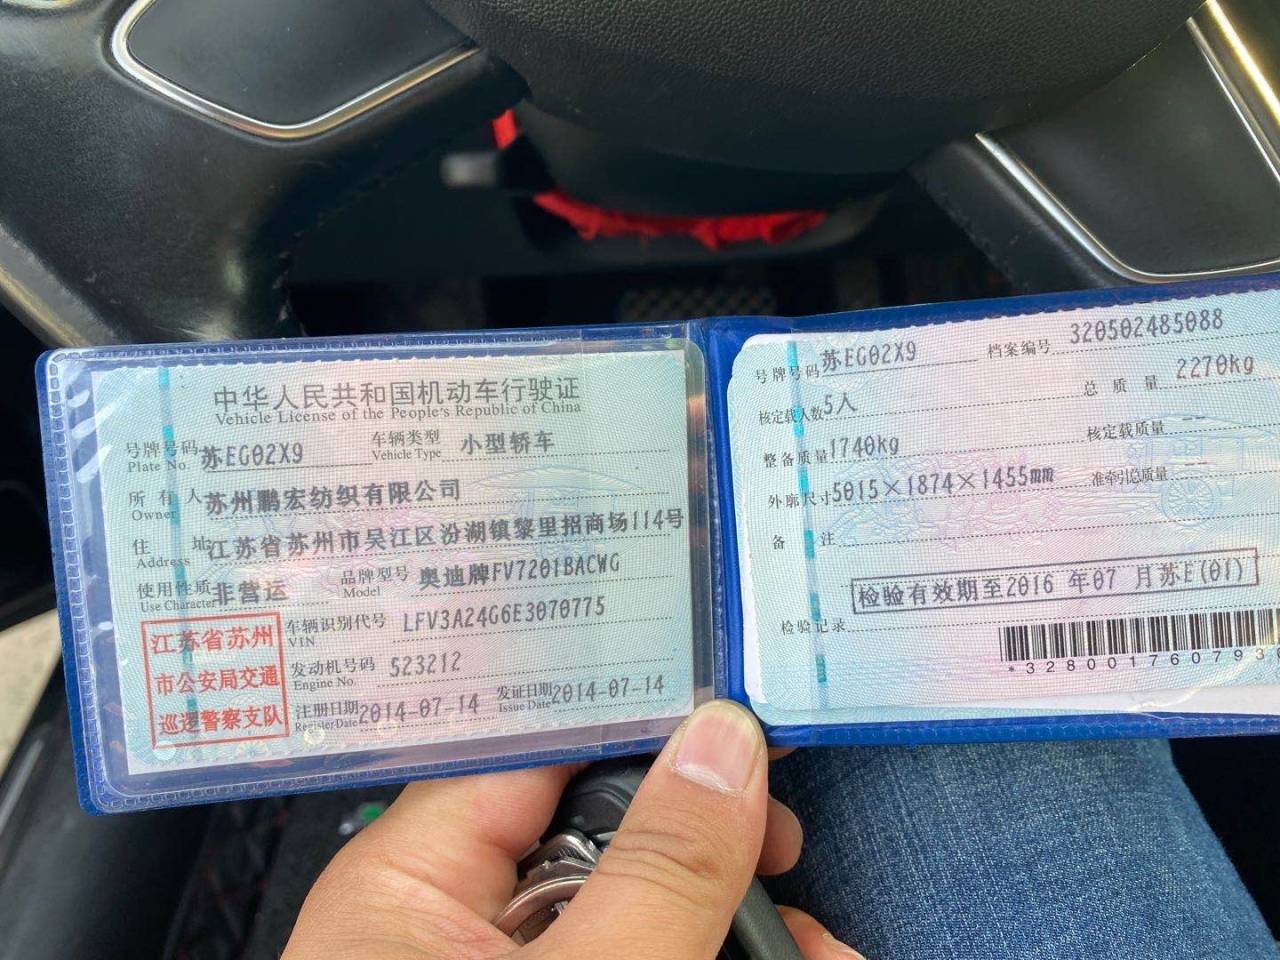 中华人民共和国机动车行驶证
Vehicle License of the People's Republic of China
号牌号码 苏EG02X9 车辆类型 小型轿车
Plate No. Vehicle Type
所有人 苏州鹏宏纺织有限公司
Owner
住址 江苏省苏州市吴江区汾湖镇黎里招商场114号
Address
使用性质 非营运 品牌型号 奥迪牌FV7201BACWG
Use Character Model
江苏省苏州
市公安局交通
巡逻警察支队
车辆识别代号 LFV3A24G6E3070775
VIN
发动机号码 523212
Engine No.
注册日期 2014-07-14 发证日期 2014-07-14
Register Date Issue Date
号牌号码 苏EG02X9 档案编号 320502485088
核定载人数 5人 总质量 2270kg
整备质量 1740kg 核定载质量 --
外廓尺寸 5015×1874×1455mm 准牵引总质量 --
备注
检验有效期至2016 年07 月苏E(01)
检验记录
*328001760793